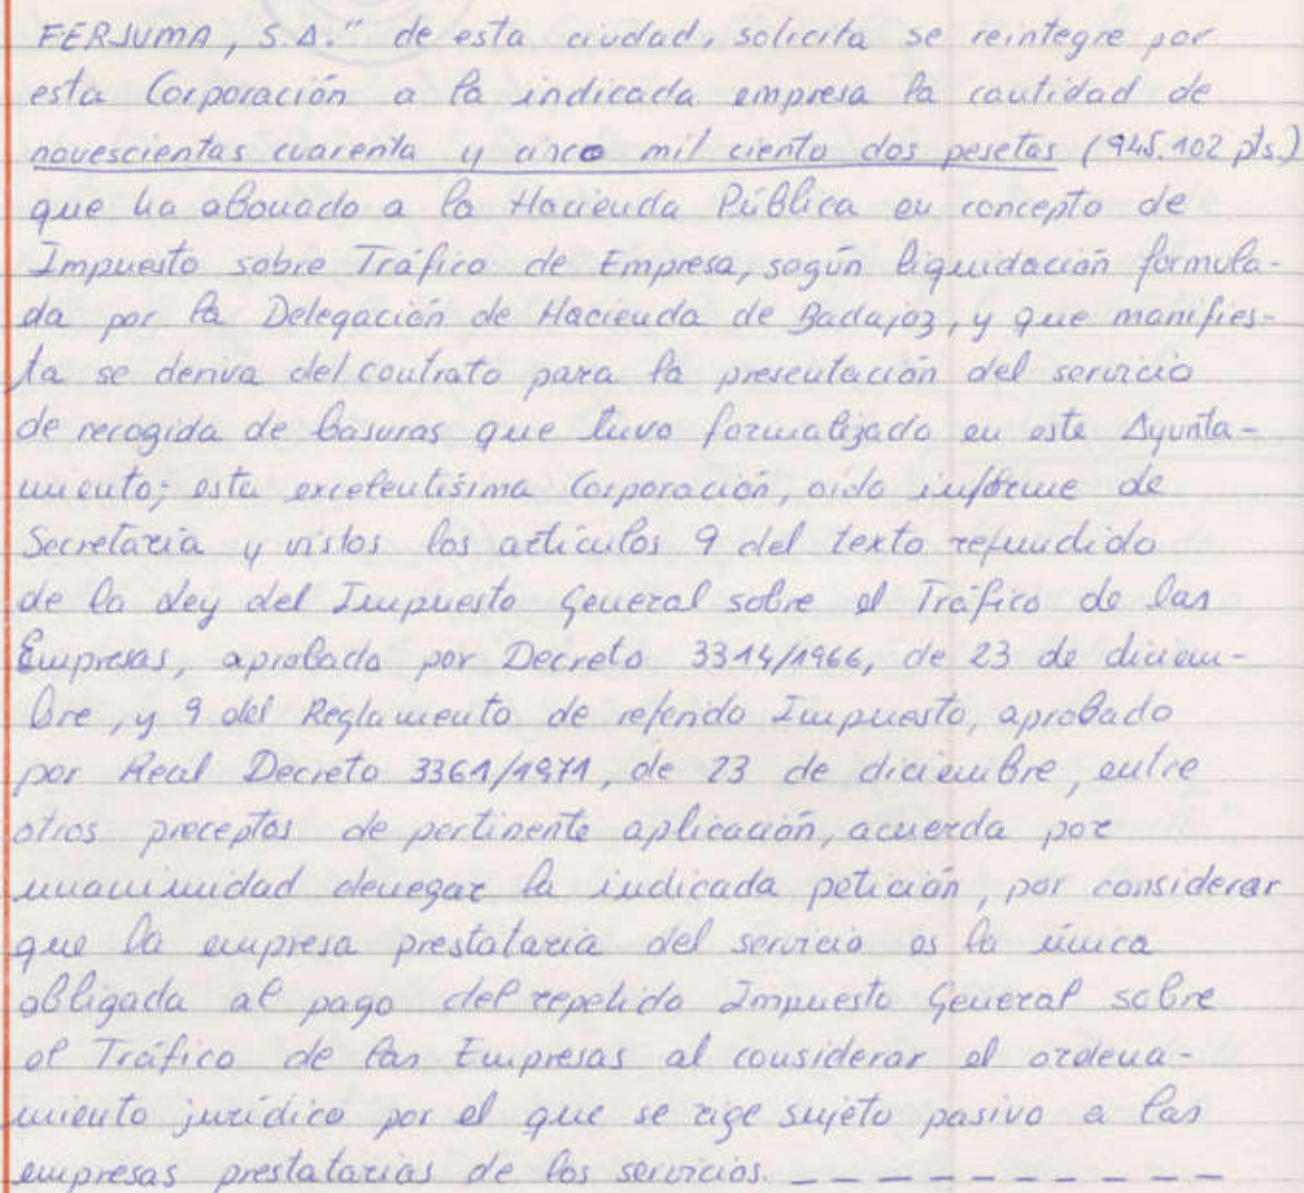 FERJUMA, S.A." de esta ciudad, solicita se reintegre por
esta Corporación a la indicada empresa la cantidad de
novescientas cuarenta y cinco mil ciento dos pesetas (945.102 pts.)
que ha abonado a la Hacienda Pública en concepto de
Impuesto sobre Tráfico de Empresa, según liquidación formula-
da por la Delegación de Hacienda de Badajoz, y que manifies-
ta se deriva del contrato para la presentación del servicio
de recogida de basuras que tuvo formalizado en este Ayunta-
miento; esta excelentísima Corporación, oído informe de
Secretaría y vistos los artículos 9 del texto refundido
de la Ley del Impuesto General sobre el Tráfico de las
Empresas, aprobada por Decreto 3314/1966, de 23 de diciem-
bre, y 9 del Reglamento de referido Impuesto, aprobado
por Real Decreto 3361/1971, de 23 de diciembre, entre
otros preceptos de pertinente aplicación, acuerda por
unanimidad denegar la indicada petición, por considerar
que la empresa prestataria del servicio es la única
obligada al pago del repetido Impuesto General sobre
el Tráfico de las Empresas al considerar el ordena-
miento jurídico por el que se rige sujeto pasivo a las
empresas prestatarias de los servicios. — — — — — — — — — —